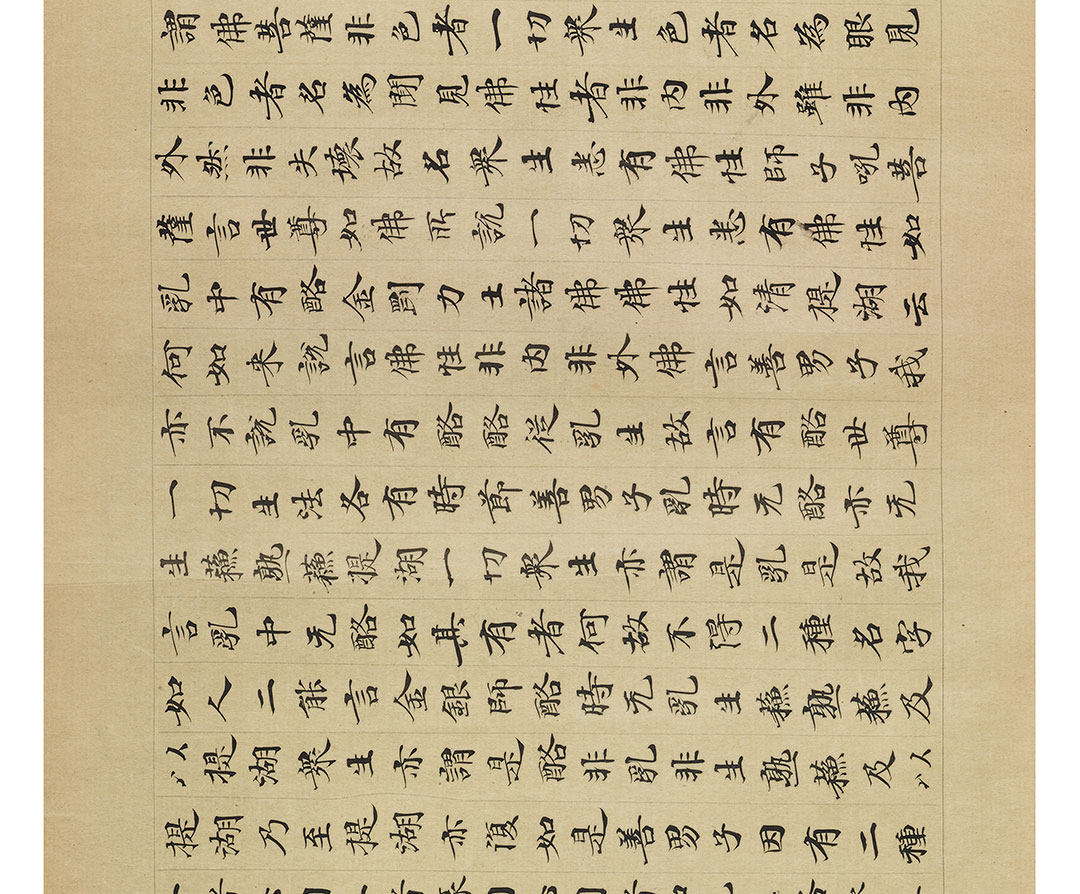 謂佛菩薩非色者一切衆生色者名為眼見
非色者名為聞見佛性者非内非外雖非内
外然非失壞故名衆生悉有佛性師子吼菩
薩言世尊如佛所說一切衆生悉有佛性如
乳中有酪金剛力士諸佛佛性如清提湖云
何如来說言佛性非内非外佛言善男子我
亦不說乳中有酪酪從乳生故言有酪世尊
一切生法各有時節善男子乳時无酪亦无
生蘓熟蘓提湖一切衆生亦謂是乳是故我
言乳中无酪如其有者何故不得二種名字
如人二能言金銀師酪時无乳生蘓熟蘓及
以提湖衆生亦謂是酪非乳非生熟蘓及以
提湖乃至提湖亦復如是善男子因有二種